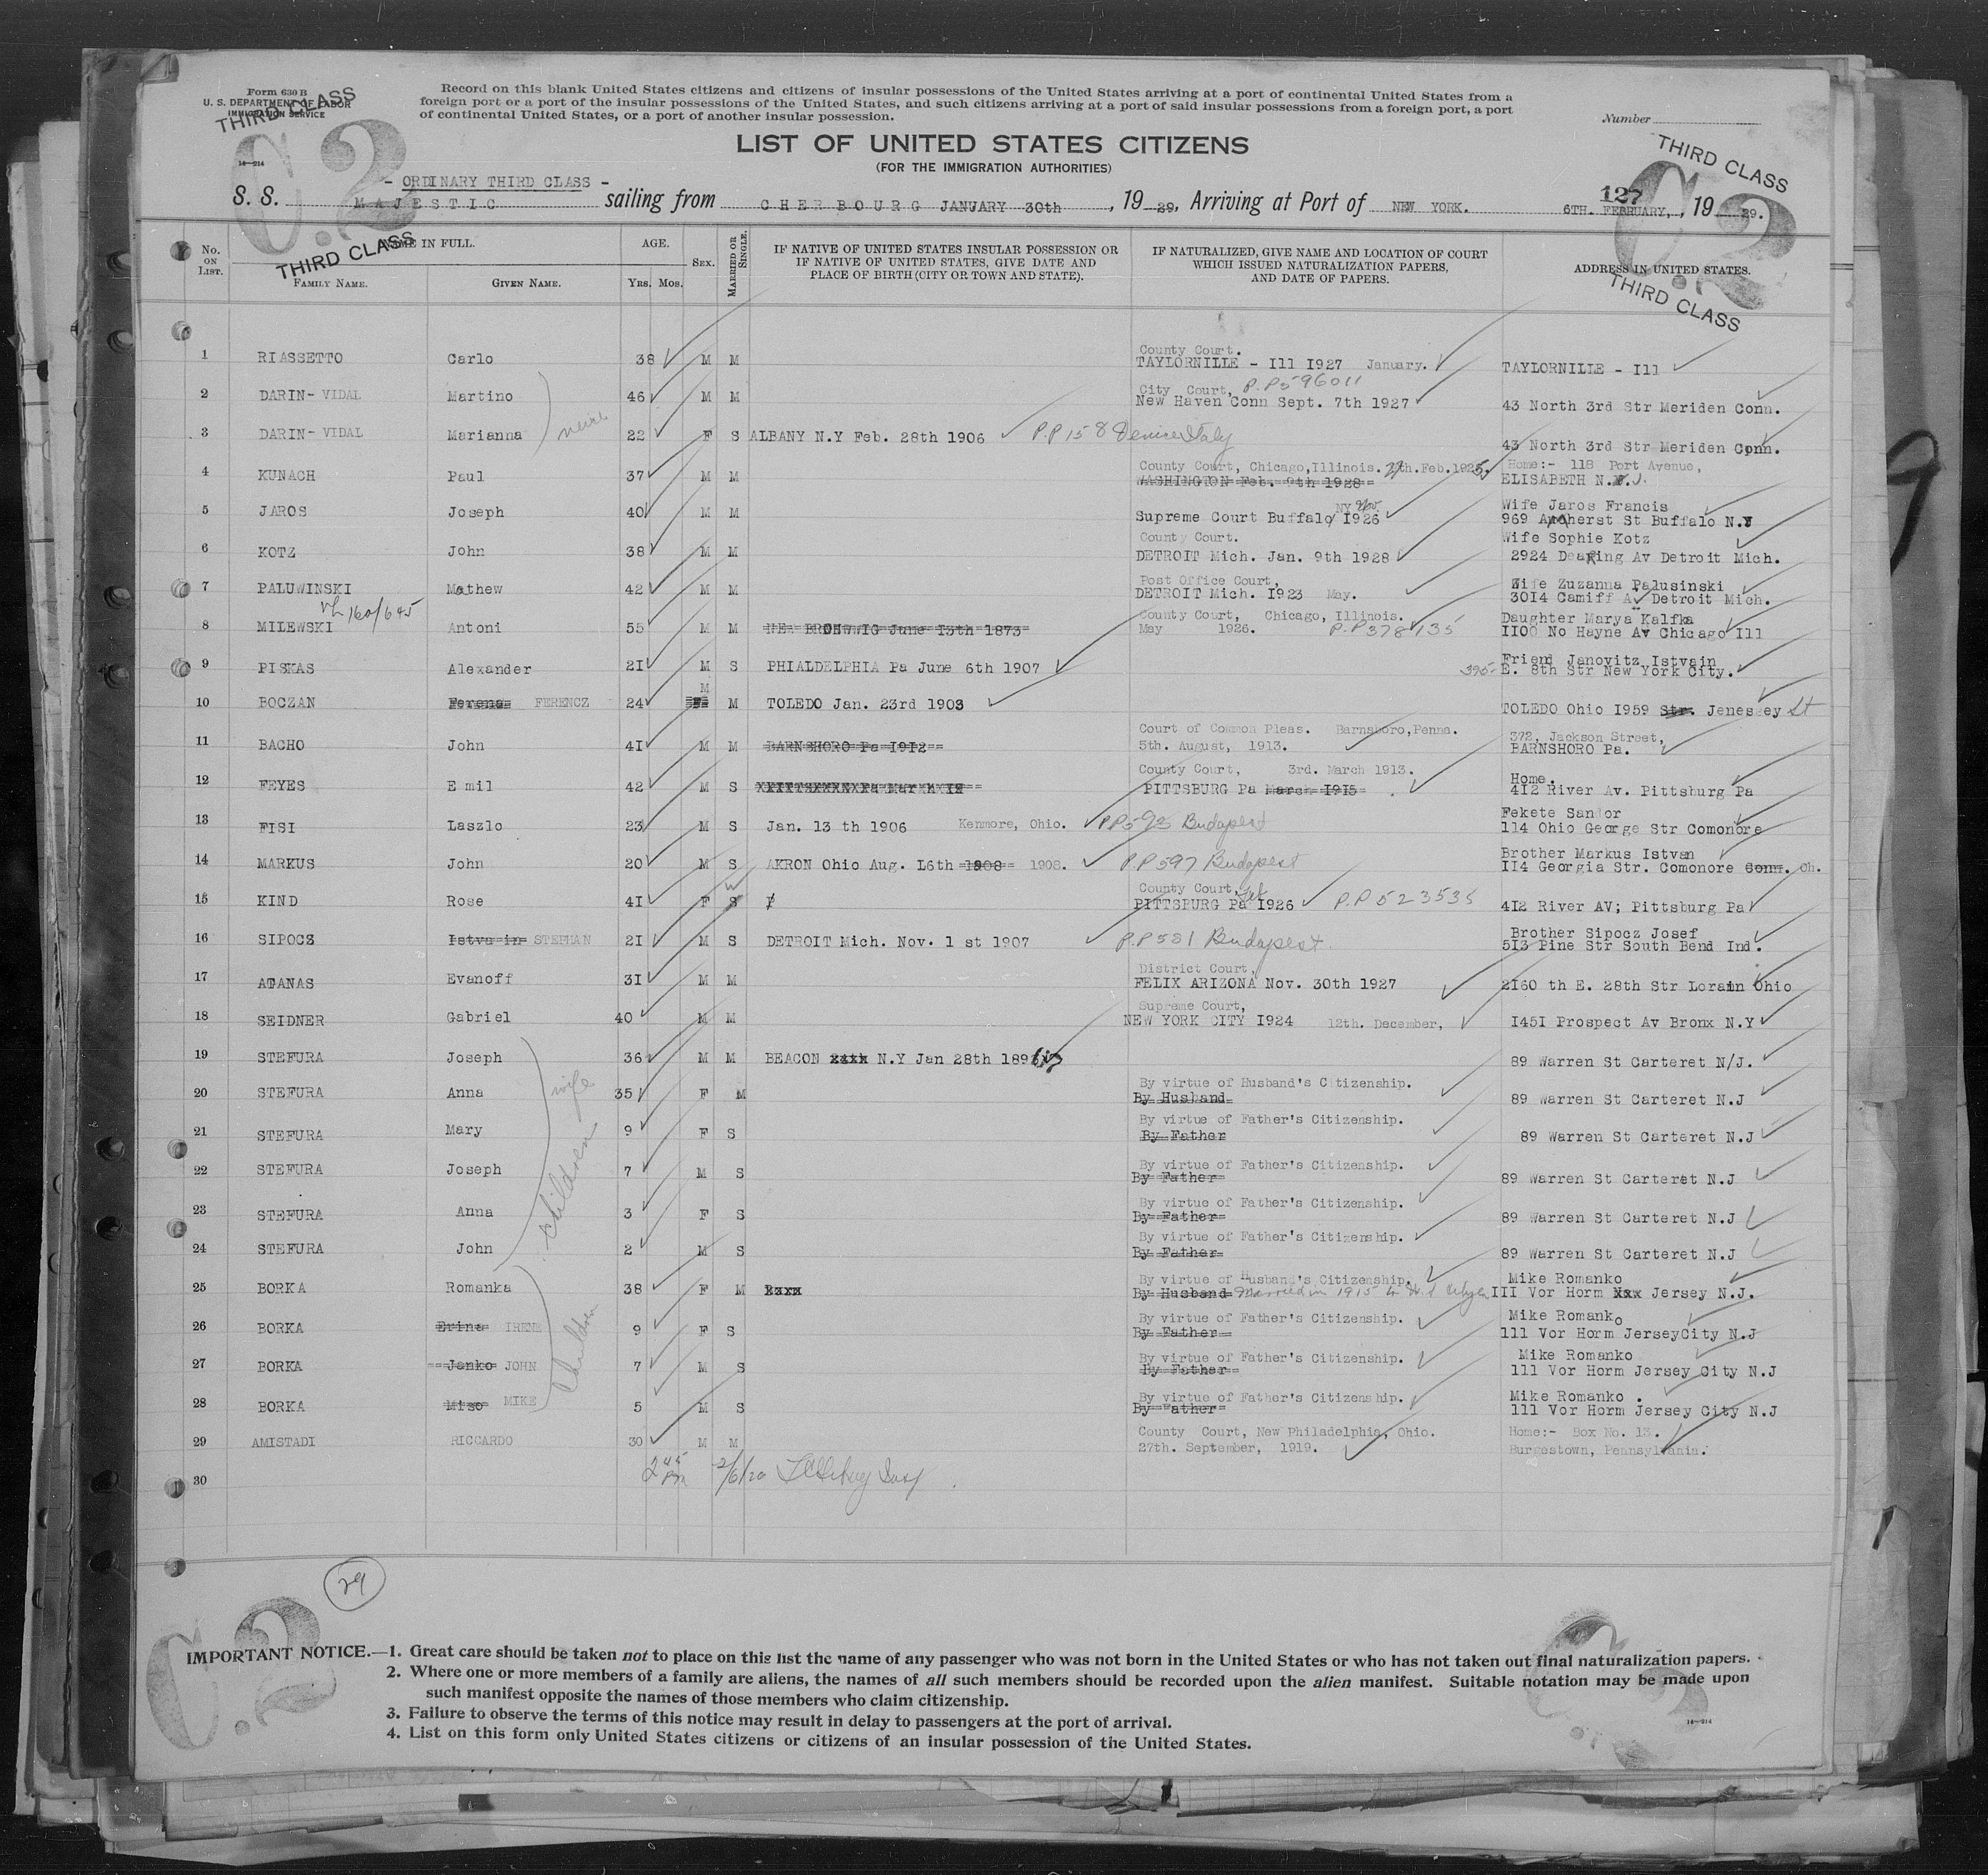 Form 630 B
U. S. DEPARTMENT OF LABOR
IMMIGRATION SERVICE
THIRD CLASS
C.2
14—914
Record on this blank United States citizens and citizens of insular possessions of the United States arriving at a port of continental United States from a
foreign port or a port of the insular possessions of the United States, and such citizens arriving at a port of said insular possessions from a foreign port, a port
of continental United States, or a port of another insular possession.
Number
LIST OF UNITED STATES CITIZENS
(FOR THE IMMIGRATION AUTHORITIES)
THIRD CLASS
C.2
127
- ORDINARY THIRD CLASS -
S. S. MAJESTIC sailing from CHERBOURG JANUARY 30th, 19 29, Arriving at Port of NEW YORK. 6TH. FEBRUARY,, 19 29.
THIRD CLASS
THIRD CLASS
No. ON LIST. NAME IN FULL. FAMILY NAME. GIVEN NAME. AGE. YRS. MOS. SEX. MARRIED OR SINGLE. IF NATIVE OF UNITED STATES INSULAR POSSESSION OR IF NATIVE OF UNITED STATES, GIVE DATE AND PLACE OF BIRTH (CITY OR TOWN AND STATE). IF NATURALIZED, GIVE NAME AND LOCATION OF COURT WHICH ISSUED NATURALIZATION PAPERS, AND DATE OF PAPERS. ADDRESS IN UNITED STATES.
County Court.
1 RIASSETTO Carlo 38 M M TAYLORNILLE - Ill I927 January. TAYLORNILLE - Ill
City Court, P.P 596011
2 DARIN-VIDAL Martino 46 M M New Haven Conn Sept. 7th 1927 43 North 3rd Str Meriden Conn.
3 DARIN-VIDAL Marianna 22 F S ALBANY N.Y Feb. 28th 1906 P.P 158 Venice Italy 43 North 3rd Str Meriden Conn.
County Court, Chicago, Illinois. 27th. Feb. 1925. Home:- 118 Port Avenue,
4 KUNACH Paul 37 M M WASHINGTON Feb. 9th 1928 ELISABETH N.J.
NY Wife Jaros Francis
5 JAROS Joseph 40 M M Supreme Court Buffalo I926 969 Amherst St Buffalo N.Y
County Court. Wife Sophie Kotz
6 KOTZ John 38 M M DETROIT Mich. Jan. 9th 1928 2924 Dearing Av Detroit Mich.
Post Office Court, Wife Zuzanna Palusinski
7 PALUWINSKI Mathew 42 M M DETROIT Mich. I923 May. 30I4 Camiff Av Detroit Mich.
160/645
County Court, Chicago, Illinois. Daughter Marya Kalfka
8 MILEWSKI Antoni 55 M M June I3th 1873 May 1926. P.P 378135 II00 No Hayne Av Chicago Ill
Friend Janovitz Istvain
9 PISKAS Alexander 2I M S PHIALDELPHIA Pa June 6th 1907 395- E. 8th Str New York City.
M
10 BOCZAN Ferenc FERENCZ 24 F M TOLEDO Jan. 23rd 1903 TOLEDO Ohio I959 Str. Jenessey St
Court of Common Pleas. Barnsboro, Penna. 372, Jackson Street,
11 BACHO John 4I M M BARNSHORO Pa I9I2 5th. August, 1913. BARNSHORO Pa.
County Court, 3rd. March 1913. Home.
12 FEYES Emil 42 M S PITTSBURG Pa March I9I5 4I2 River Av. Pittsburg Pa
Fekete Sandor
13 FISI Laszlo 23 M S Jan. 13 th 1906 Kenmore, Ohio. P.P 593 Budapest 114 Ohio George Str Comonore
Brother Markus Istvan
14 MARKUS John 20 M S AKRON Ohio Aug. I6th 1908 1908. P.P 597 Budapest II4 Georgia Str. Comonore Conn. Oh.
County Court,
15 KIND Rose 4I F S PITTSPURG Pa I926 P.P 523535 4I2 River AV; Pittsburg Pa
Brother Sipocz Josef
16 SIPOCZ Istva in STEPHAN 2I M S DETROIT Mich. Nov. 1 st 1907 P.P 581 Budapest. 5I3 Pine Str South Bend Ind.
District Court,
17 ATANAS Evanoff 3I M M FELIX ARIZONA Nov. 30th 1927 2I60 th E. 28th Str Lorain Ohio
Supreme Court,
18 SEIDNER Gabriel 40 M M NEW YORK CITY I924 12th. December, I45I Prospect Av Bronx N.Y
19 STEFURA Joseph 36 M M BEACON N.Y Jan 28th 189 89 Warren St Carteret N/J.
By virtue of Husband's Citizenship.
20 STEFURA Anna 35 F M By Husband 89 Warren St Carteret N.J
By virtue of Father's Citizenship.
21 STEFURA Mary 9 F S By Father 89 Warren St Carteret N.J
By virtue of Father's Citizenship.
22 STEFURA Joseph 7 M S By Father 89 Warren St Carteret N.J
By virtue of Father's Citizenship.
23 STEFURA Anna 3 F S By Father 89 Warren St Carteret N.J
By virtue of Father's Citizenship.
24 STEFURA John 2 M S By Father 89 Warren St Carteret N.J
wife
children
By virtue of Husband's Citizenship. Mike Romanko
25 BORKA Romanka 38 F M By Husband Married in 1915 to U.S citizen III Vor Horm Jersey N.J.
By virtue of Father's Citizenship. Mike Romanko
26 BORKA Erina IRENE 9 F S By Father 111 Vor Horm JerseyCity N.J
By virtue of Father's Citizenship. Mike Romanko
27 BORKA Janko JOHN 7 M S By Father 111 Vor Horm Jersey City N.J
By virtue of Father's Citizenship. Mike Romanko .
28 BORKA Miso MIKE 5 M S By Father 111 Vor Horm Jersey City N.J
children
County Court, New Philadelphia, Ohio. Home:- Box No. 13.
29 AMISTADI RICCARDO 30 M M 27th. September, 1919. Burgestown, Pennsylvania.
30 2 45 PM
29
C.2
C.2
IMPORTANT NOTICE.—1. Great care should be taken not to place on this list the name of any passenger who was not born in the United States or who has not taken out final naturalization papers.
2. Where one or more members of a family are aliens, the names of all such members should be recorded upon the alien manifest. Suitable notation may be made upon
such manifest opposite the names of those members who claim citizenship.
3. Failure to observe the terms of this notice may result in delay to passengers at the port of arrival.
4. List on this form only United States citizens or citizens of an insular possession of the United States.
14—914